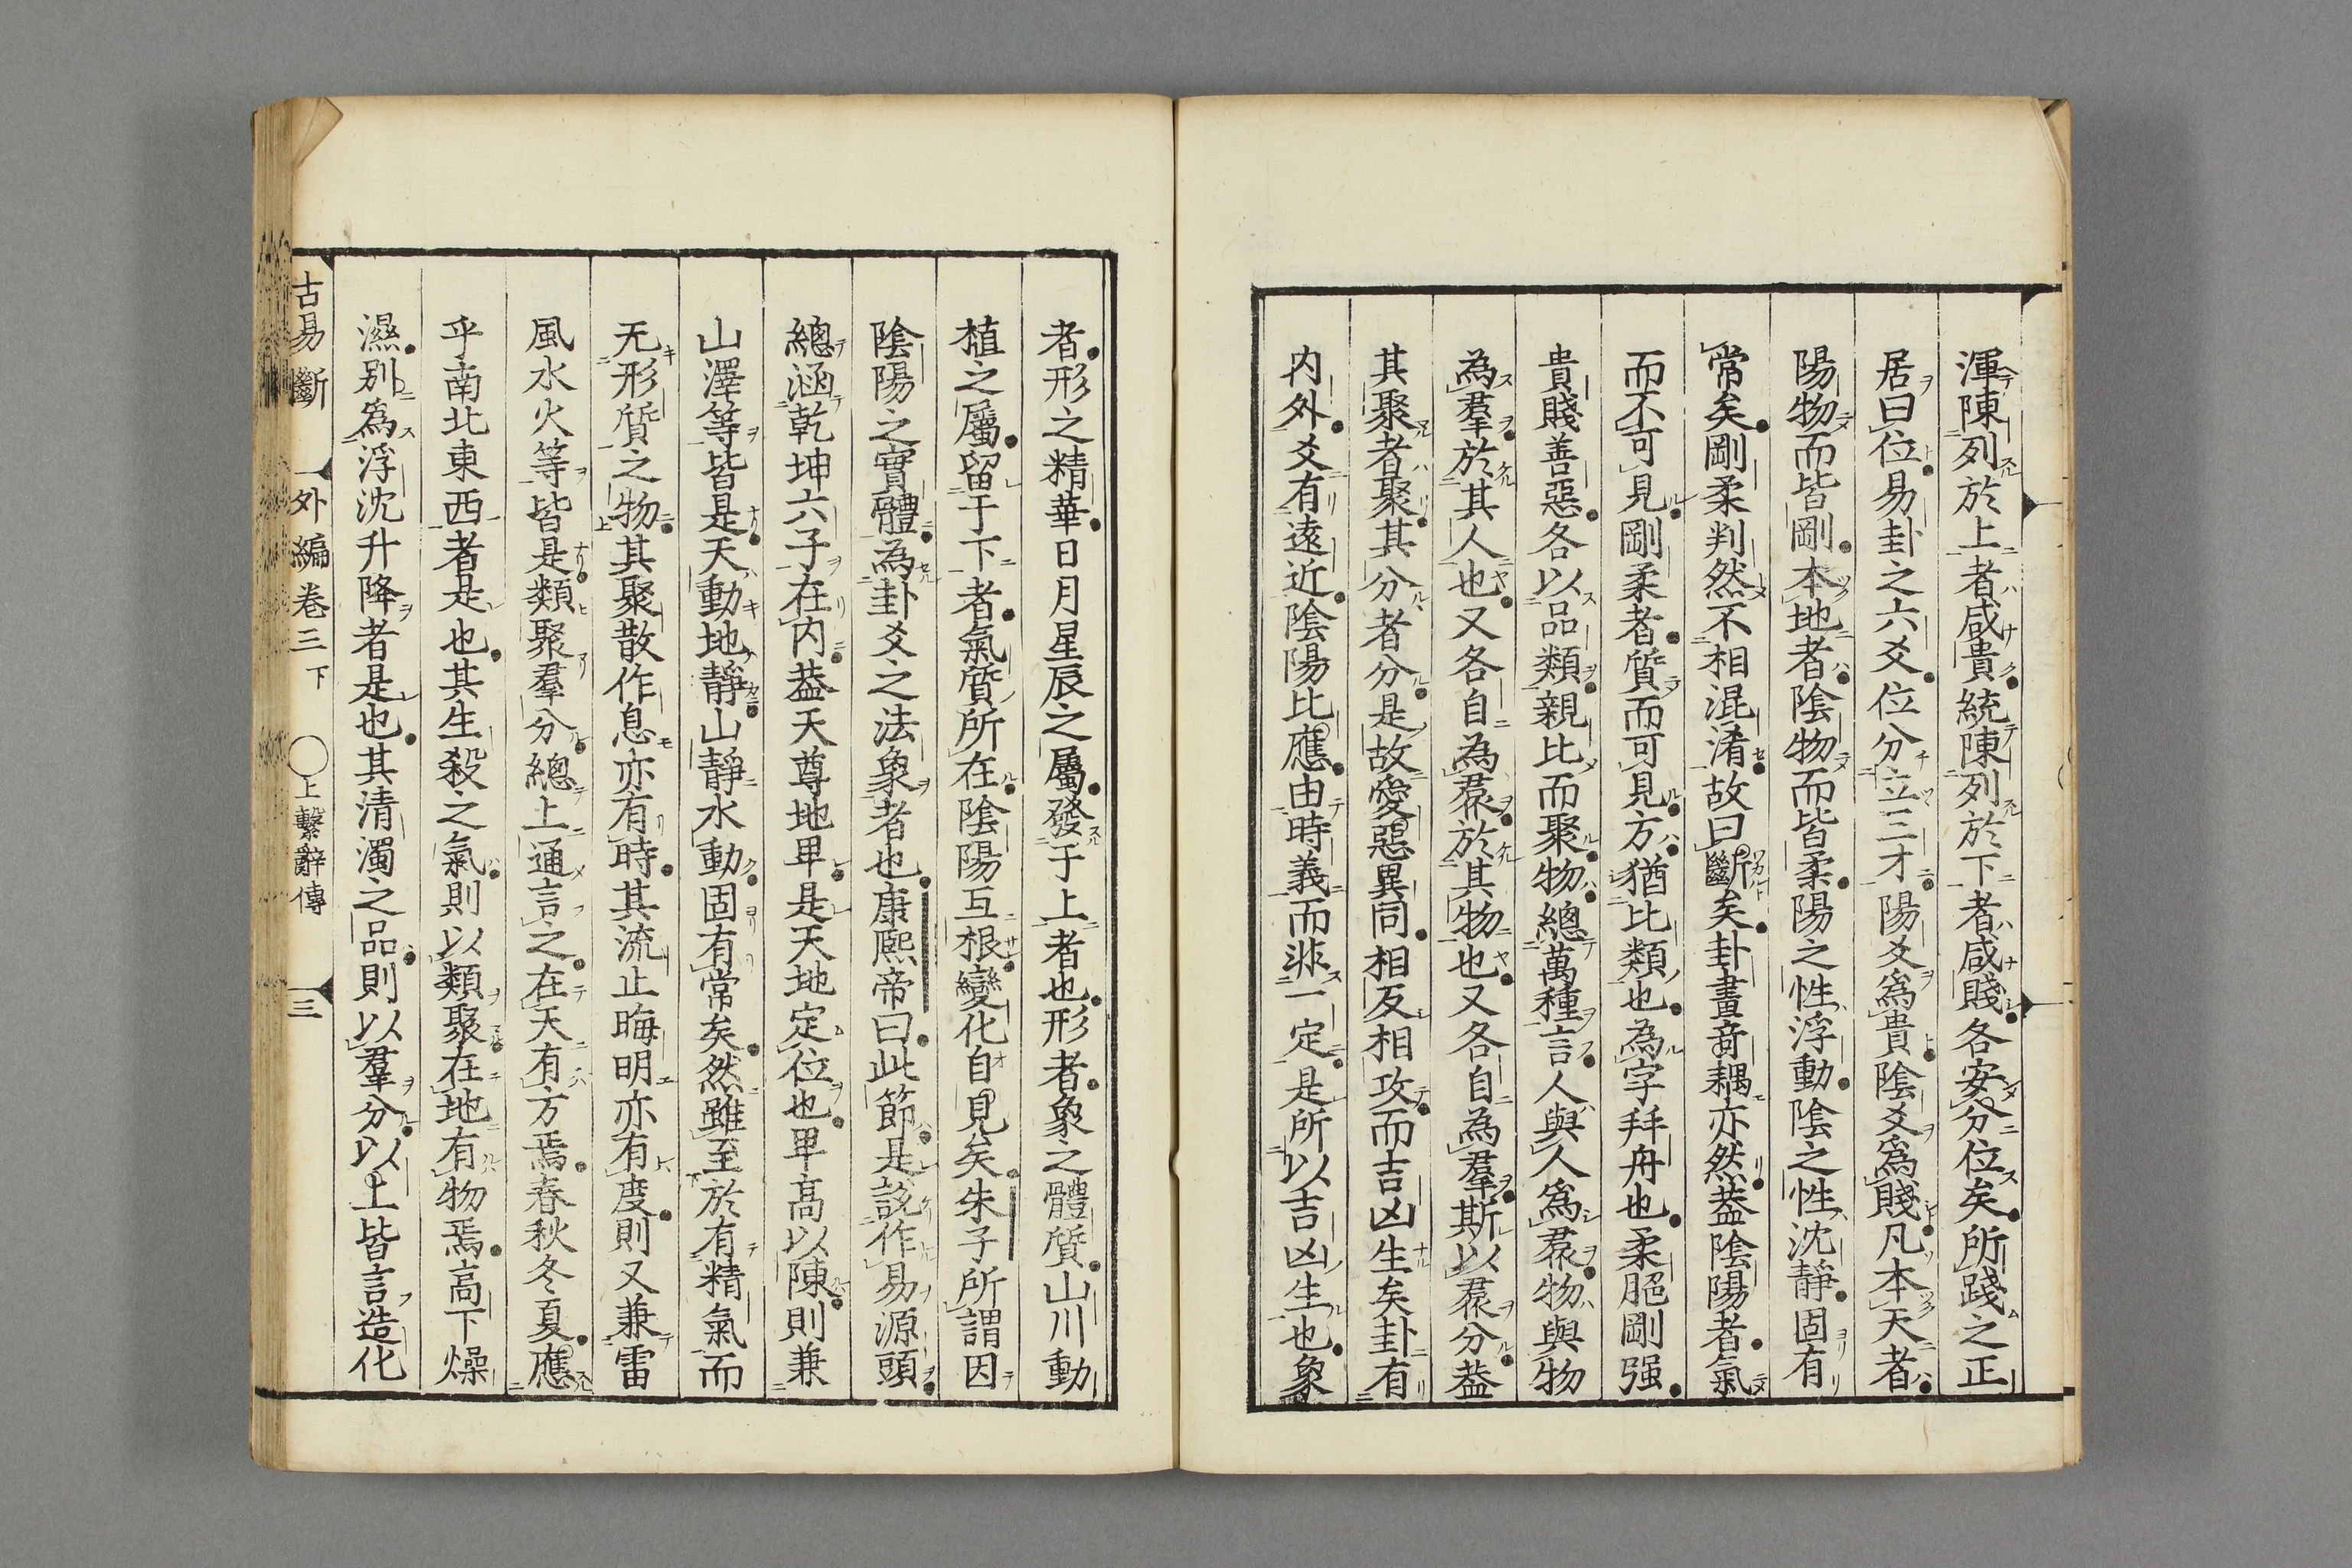 渾陳列於上者咸貴統陳列於下者咸賤各安分位矣所踐之正
居曰位易卦之六爻位分立三才陽爻爲貴陰爻爲賤凡本天者
陽物而皆剛本地者陰物而皆柔陽之性浮動陰之性沈靜固有
常矣剛柔判然不相混淆故曰斷矣卦畫竒耦亦然葢陰陽者氣
而不可見剛柔者質而可見方猶比類也為字拜舟也柔脆剛强
貴賤善惡各以品類親比而聚物總萬種言人與人爲羣物與物
為羣於其人也又各自為羣於其物也又各自為羣斯以羣分葢
其聚者聚其分者分是故愛惡異同相反相攻而吉凶生矣卦有
内外爻有遠近陰陽比應由時義而非一定是所以吉凶生也象
者形之精華日月星辰之屬發于上者也形者象之體質山川動
植之屬留于下者氣質所在陰陽互根變化自見矣朱子所謂因
陰陽之實體為卦爻之法象者也康熙帝曰此節是說作易源頭
總涵乾坤六子在内葢天尊地卑是天地定位也卑高以陳則兼
山澤等皆是天動地靜山靜水動固有常矣然雖至於有精氣而
无形質之物其聚散作息亦有時其流止晦明亦有度則又兼雷
風水火等皆是類聚羣分總上通言之在天有方焉春秋冬夏應
乎南北東西者是也其生殺之氣則以類聚在地有物焉高下燥
濕別爲浮沈升降者是也其清濁之品則以羣分以上皆言造化
古易斷 外編卷三下 ○上繫辭傳 三